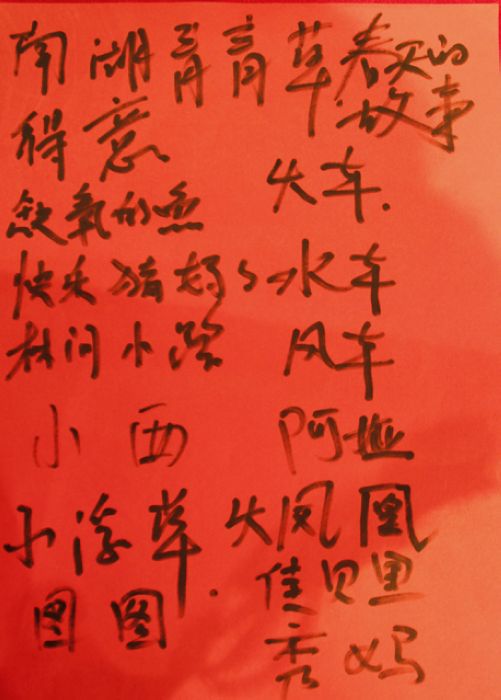 南湖青青草 春天的故事
得意 火车
缺氧的鱼
快乐猪妈妈 水车
林间小路 风车
小西 阿拉
小浮草 火凤凰
图图 佳贝里
秀妈